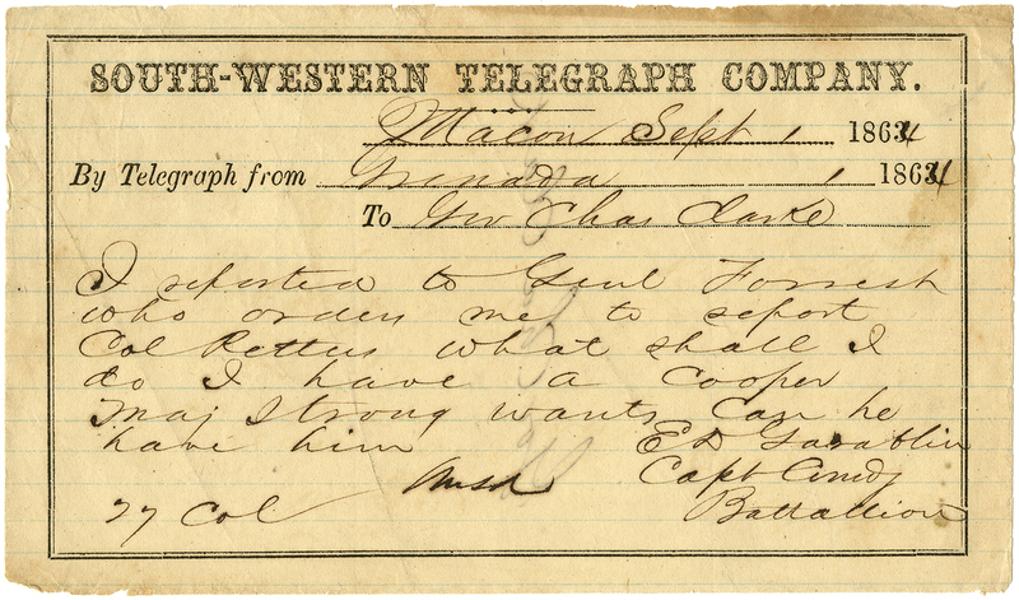 SOUTH-WESTERN TELEGRAPH COMPANY.
Macon Sept 1 1864
By Telegraph from Grenada 1 1864
To Gov Chas Clarke
I reported to Genl Forrest
who orders me to report
Col Pettus what shall I
do I have a Cooper
Maj Strong wants Can he
have him
E D
Capt Comdg
Battallion
27 Col